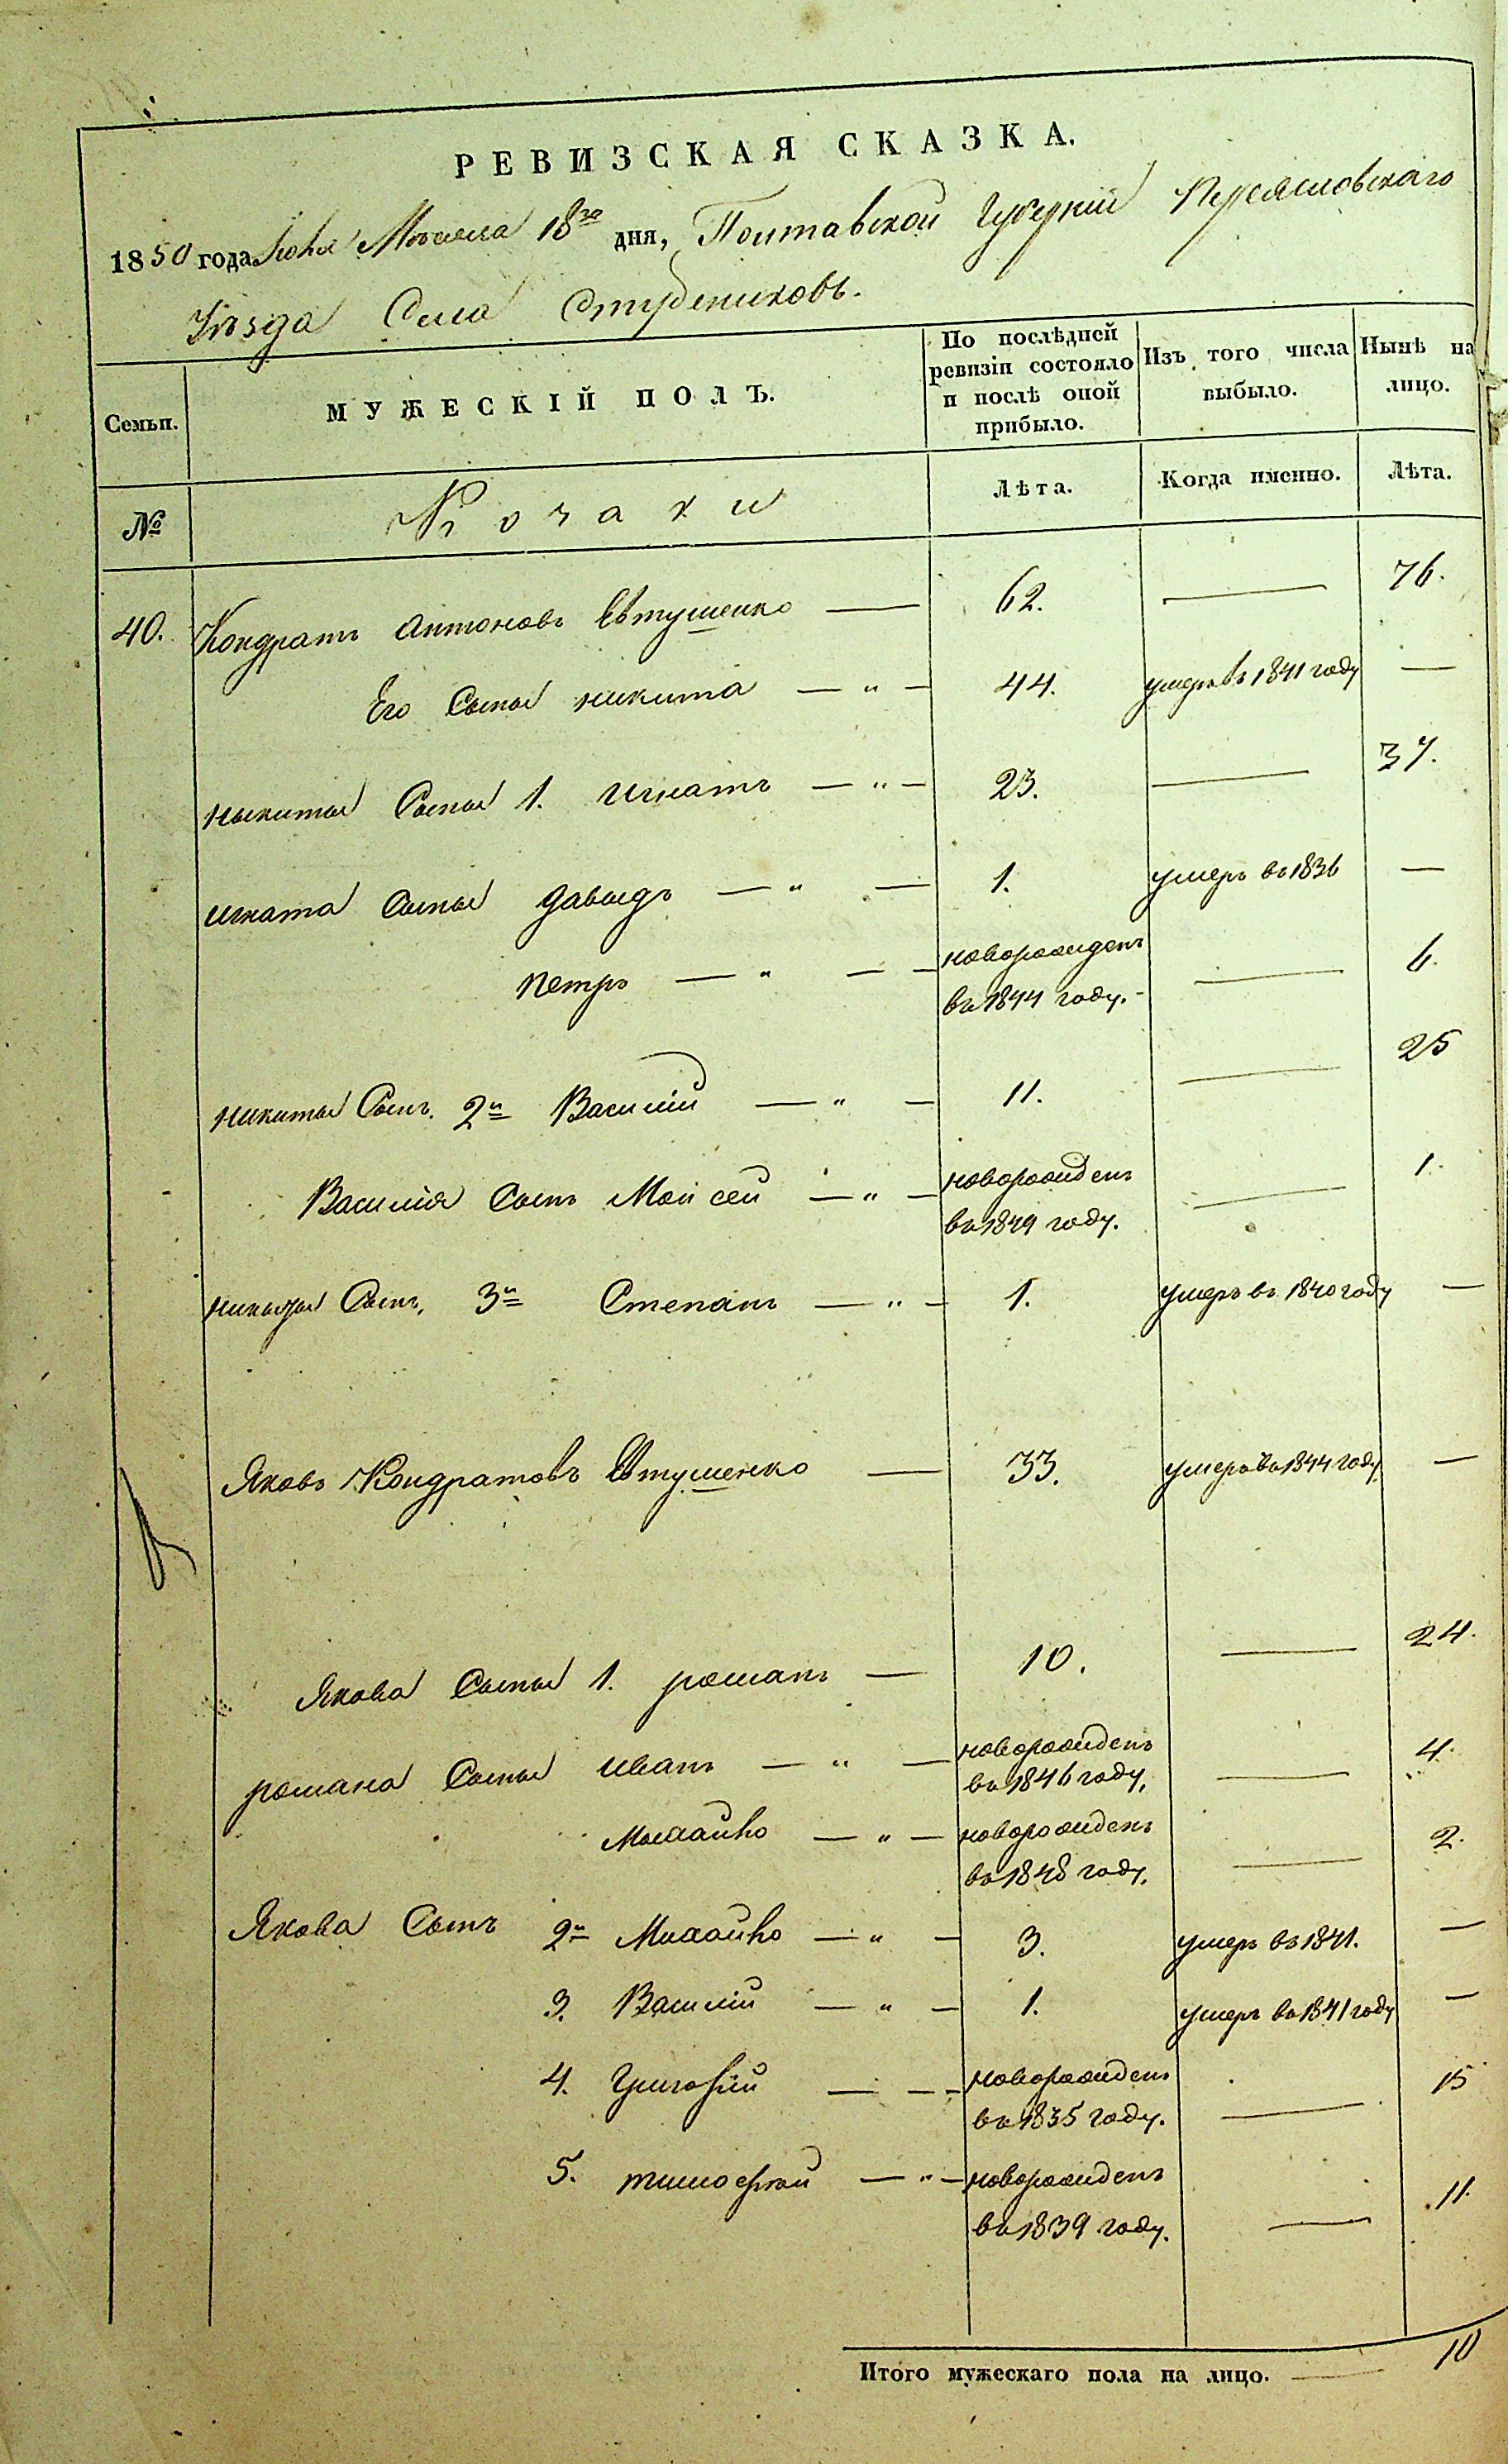 РЕВИЗСКАЯ СКАЗКА.
1850 года Июня Месяца 18го дня, Полтавской Губерніи Переясловскаго
Уѣзда Села Студениковъ.
Семьи. МУЖЕСКІЙ ПОЛЪ. По послѣдней ревизіи состояло и послѣ оной прибыло. Изъ того числа выбыло. Нынѣ на лицо.
№ Козаки Лѣта. Когда именно. Лѣта.
40. Кондратъ Антоновъ Евтушенко — 62. — 76.
Его Сынъ никита — " — 44. умеръ въ 1841 году —
никиты Сыны 1. игнатъ — " — 23. — 37.
игната Сыны давыдъ — " — 1. умеръ въ 1836 —
петръ — " — новорожденъ въ 1844 году. — 6.
никиты Сынъ. 2й Василій — " — 11. — 25
Василія Сынъ Мойсей — " — новорожденъ въ 1849 году. — 1.
никиты Сынъ, 3й Степанъ — " — 1. умеръ въ 1840 году —
Яковъ Кондратовъ Евтушенко — 33. умеръ въ 1844 году —
Якова Сыны 1. романъ — 10. — 24.
романа Сыны иванъ — " — новорожденъ въ 1846 году, — 4.
Михайло — " — новорожденъ въ 1848 году, — 2.
Якова Сынъ 2й Михайло — " — 3. умеръ въ 1841. —
3. Василій — " — 1. умеръ въ 1841 году —
4. Григорій — — новорожденъ въ 1835 году. — 15
5. тимофѣй — " — новорожденъ въ 1839 году. — 11.
Итого мужескаго пола на лицо. — 10